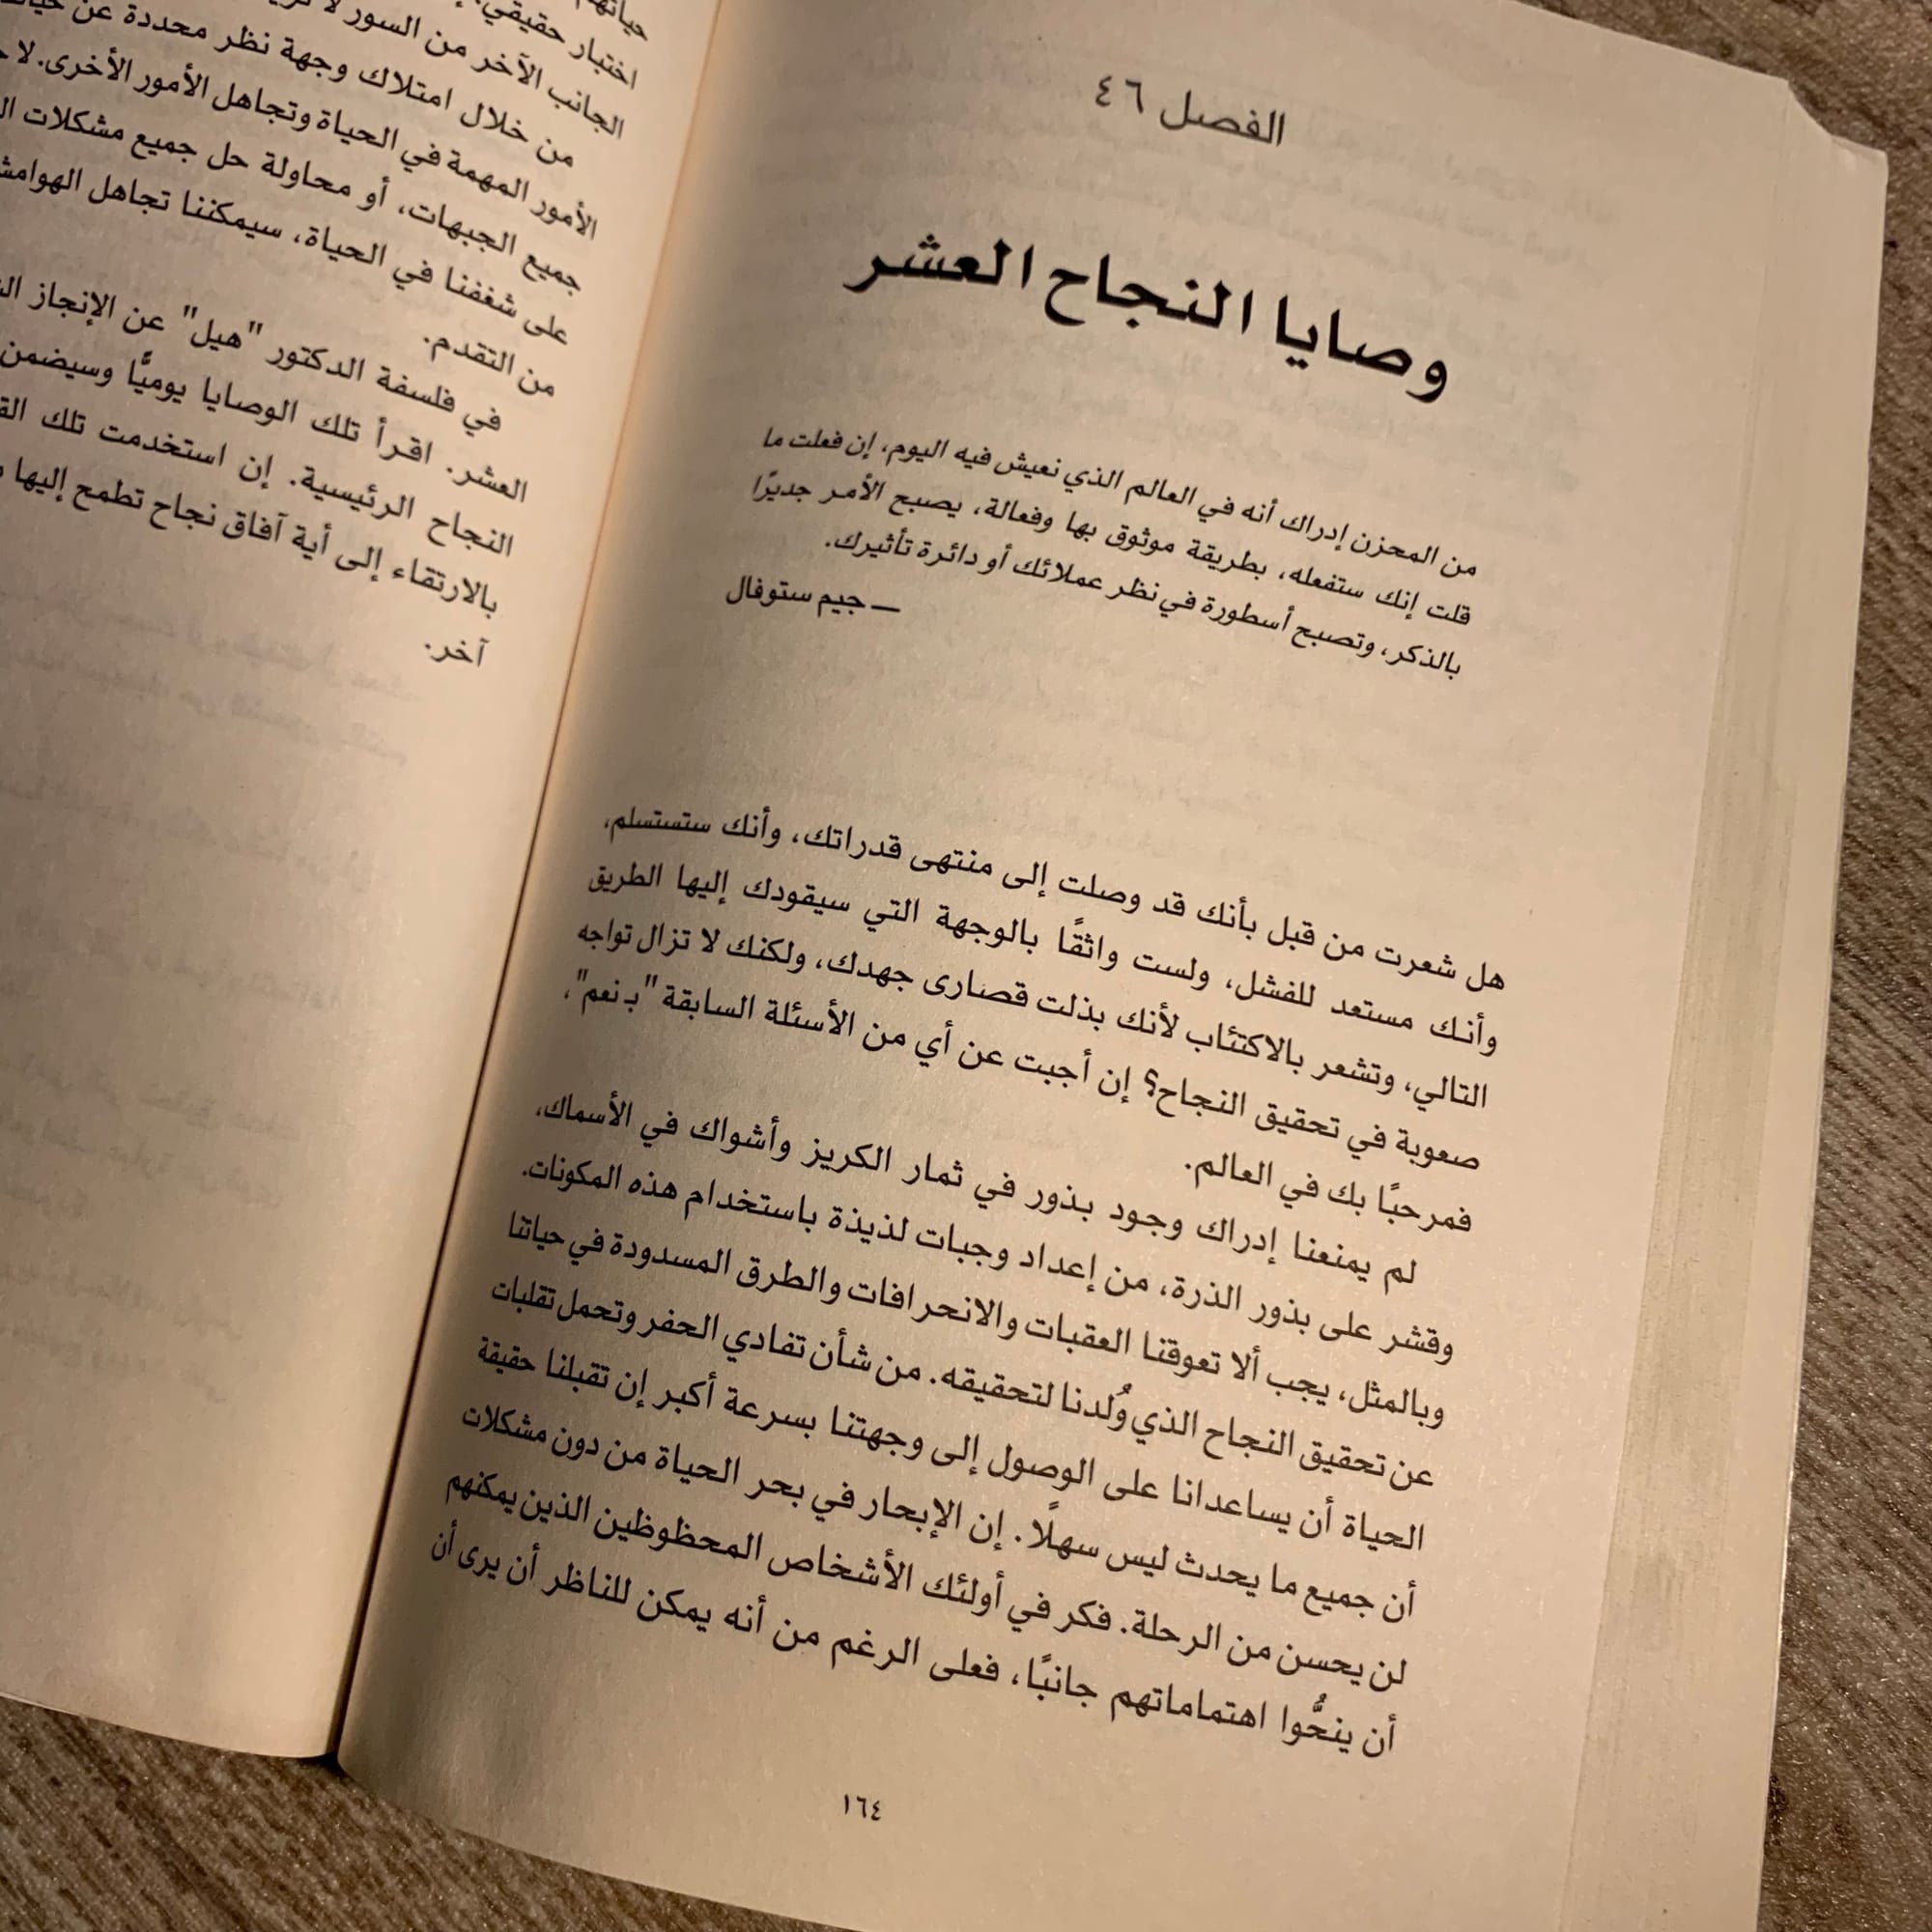 الفصل ٤٦
وصايا النجاح العشر
من المحزن إدراك أنه في العالم الذي نعيش فيه اليوم، إن فعلت ما
قلت إنك ستفعله، بطريقة موثوق بها وفعالة، يصبح الأمر جديرًا
بالذكر، وتصبح أسطورة في نظر عملائك أو دائرة تأثيرك.
— جيم ستوفال
هل شعرت من قبل بأنك قد وصلت إلى منتهى قدراتك، وأنك ستستسلم،
وأنك مستعد للفشل، ولست واثقًا بالوجهة التي سيقودك إليها الطريق
التالي، وتشعر بالاكتئاب لأنك بذلت قصارى جهدك، ولكنك لا تزال تواجه
صعوبة في تحقيق النجاح؟ إن أجبت عن أي من الأسئلة السابقة "بـ نعم"،
فمرحبًا بك في العالم.
لم يمنعنا إدراك وجود بذور في ثمار الكريز وأشواك في الأسماك،
وقشر على بذور الذرة، من إعداد وجبات لذيذة باستخدام هذه المكونات.
وبالمثل، يجب ألا تعوقنا العقبات والانحرافات والطرق المسدودة في حياتنا
عن تحقيق النجاح الذي وُلدنا لتحقيقه. من شأن تفادي الحفر وتحمل تقلبات
الحياة أن يساعدانا على الوصول إلى وجهتنا بسرعة أكبر إن تقبلنا حقيقة
أن جميع ما يحدث ليس سهلًا. إن الإبحار في بحر الحياة من دون مشكلات
لن يحسن من الرحلة. فكر في أولئك الأشخاص المحظوظين الذين يمكنهم
أن ينحُّوا اهتماماتهم جانبًا، فعلى الرغم من أنه يمكن للناظر أن يرى أن
١٦٤
حياتهم
اختبار حقيقي.
الجانب الآخر من السور لا
من خلال امتلاك وجهة نظر محددة عن
الأمور المهمة في الحياة وتجاهل الأمور الأخرى. لا
جميع الجبهات، أو محاولة حل جميع مشكلات
على شغفنا في الحياة، سيمكننا تجاهل
من التقدم.
في فلسفة الدكتور "هيل" عن الإنجاز
العشر. اقرأ تلك الوصايا يوميًّا وسيضمن
النجاح الرئيسية. إن استخدمت تلك
بالارتقاء إلى أية آفاق نجاح تطمح إليها
آخر.